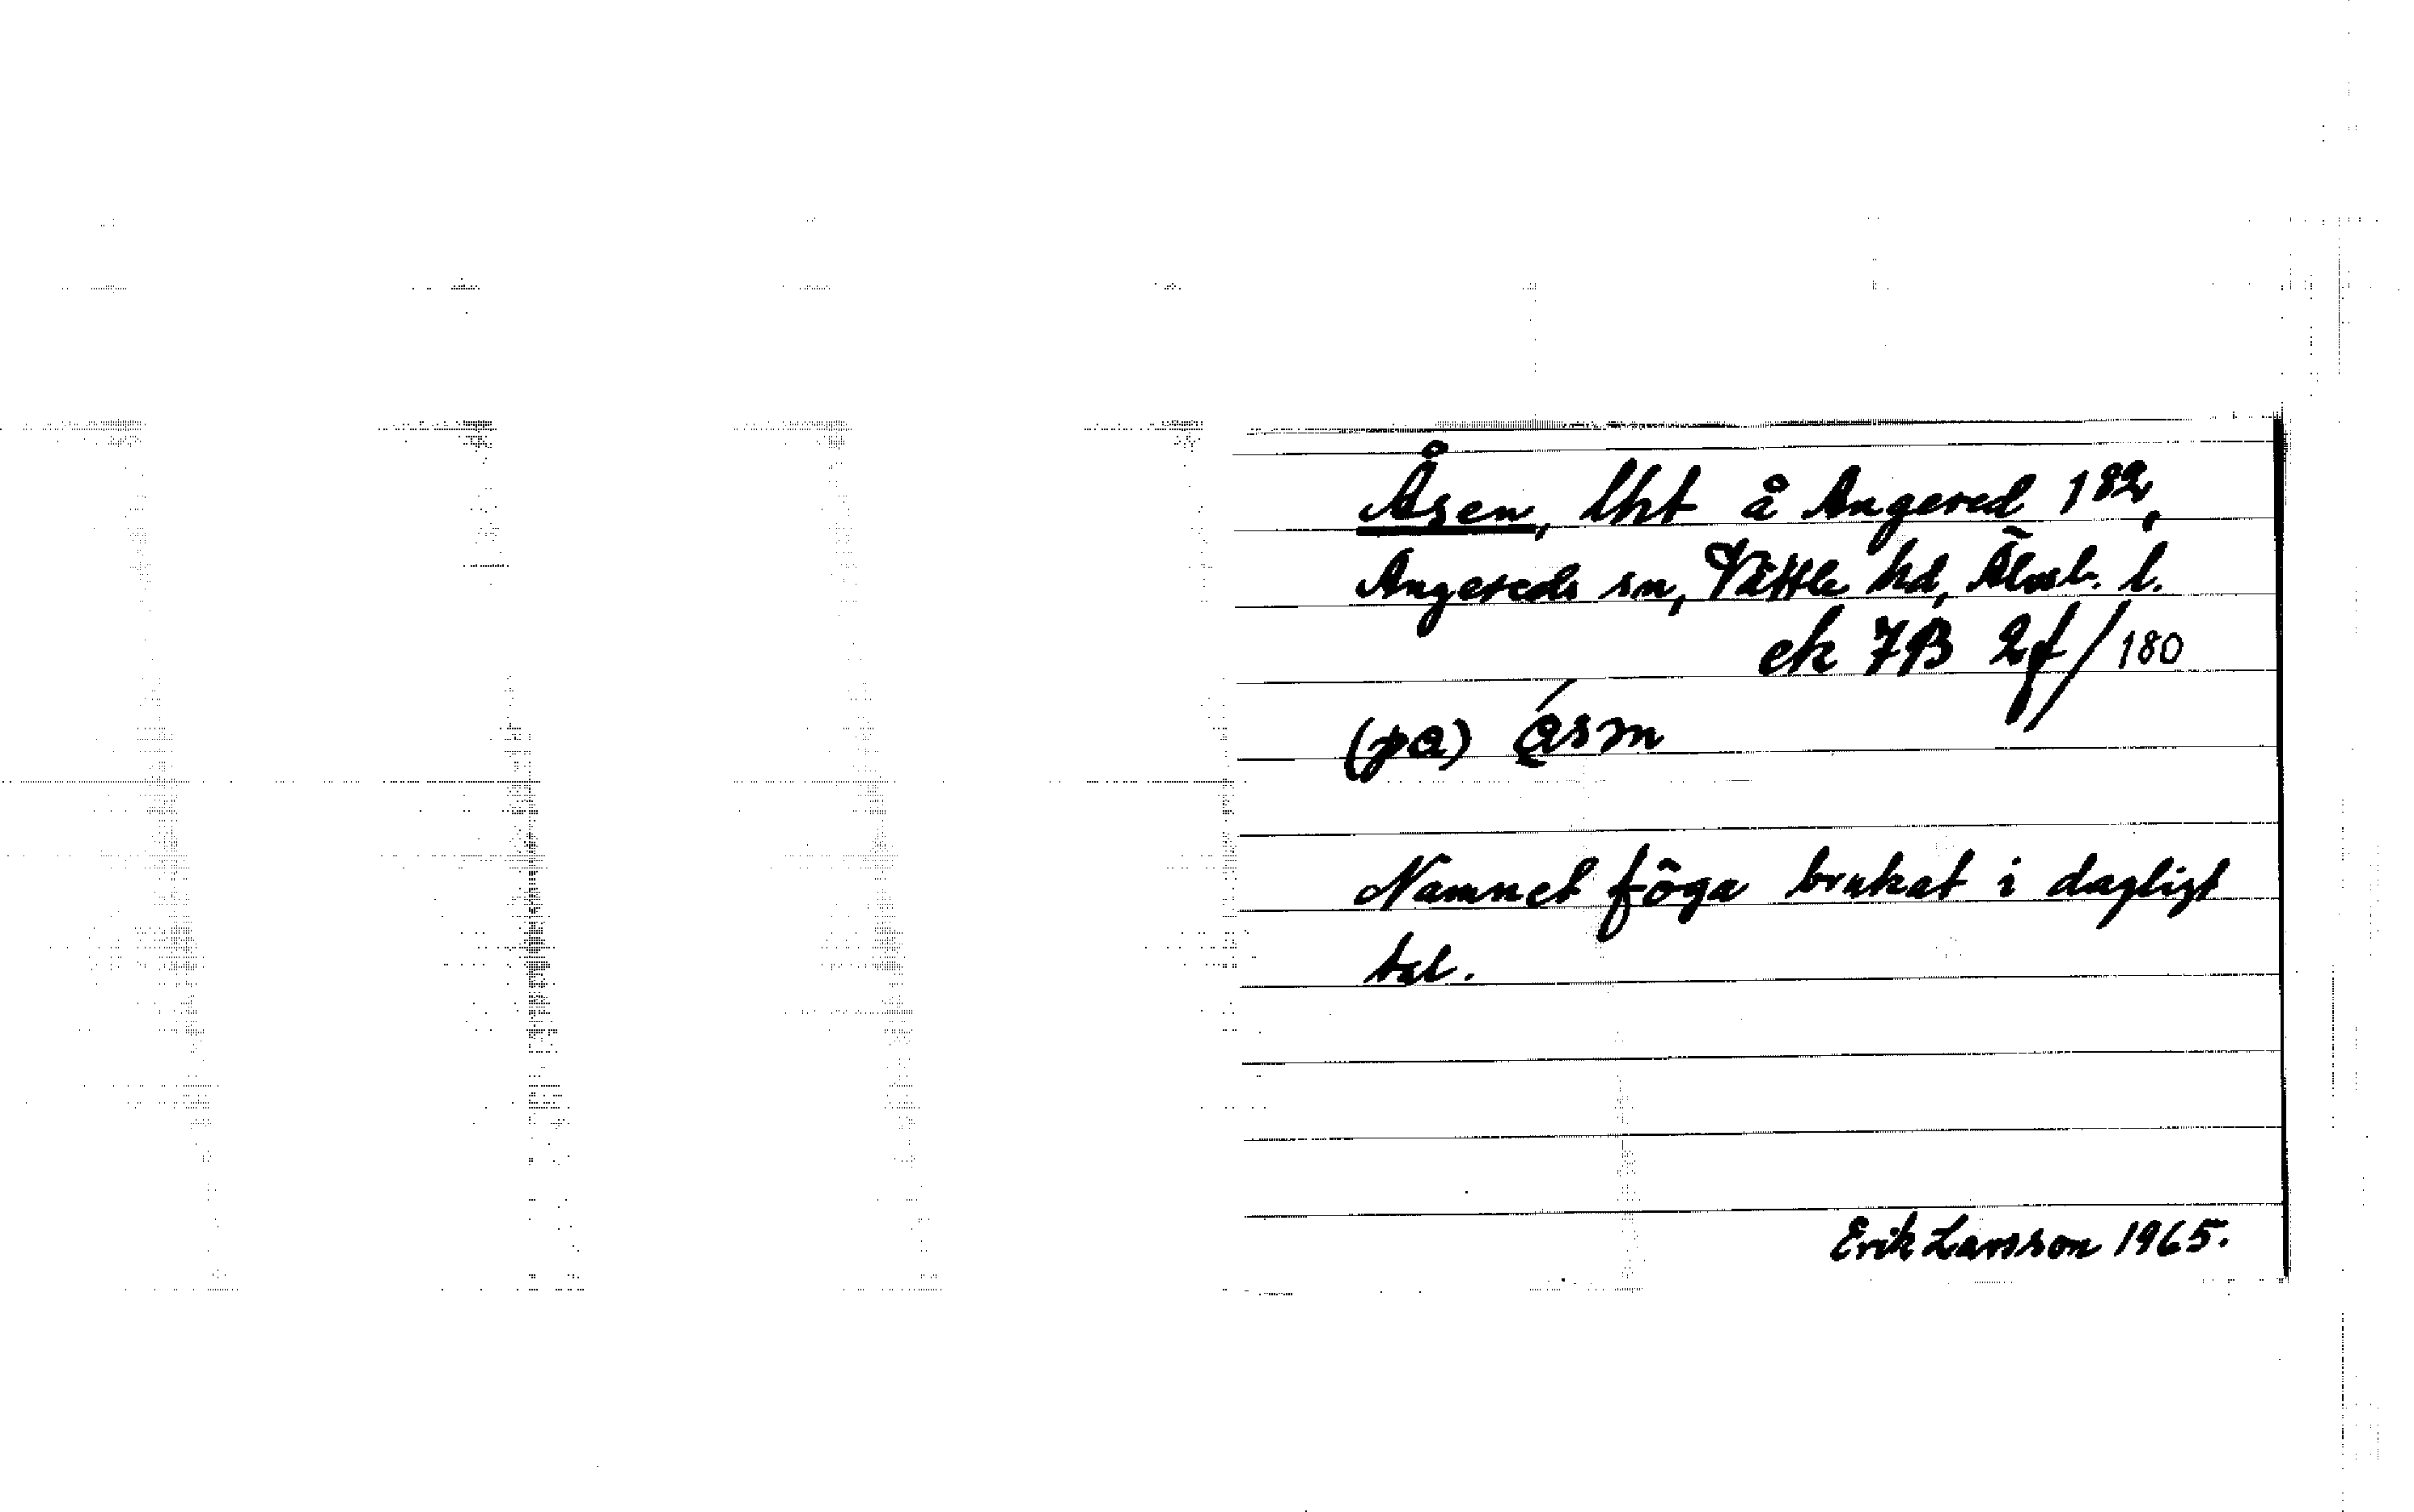 Åsen, lht å Angered 1⁸²,
Angereds sn, Vättle hd, Älvsb. l.
ek 7B 2f/180
(på) ásm
Namnet föga brukat i dagligt
tal.
Erik Larsson 1965.